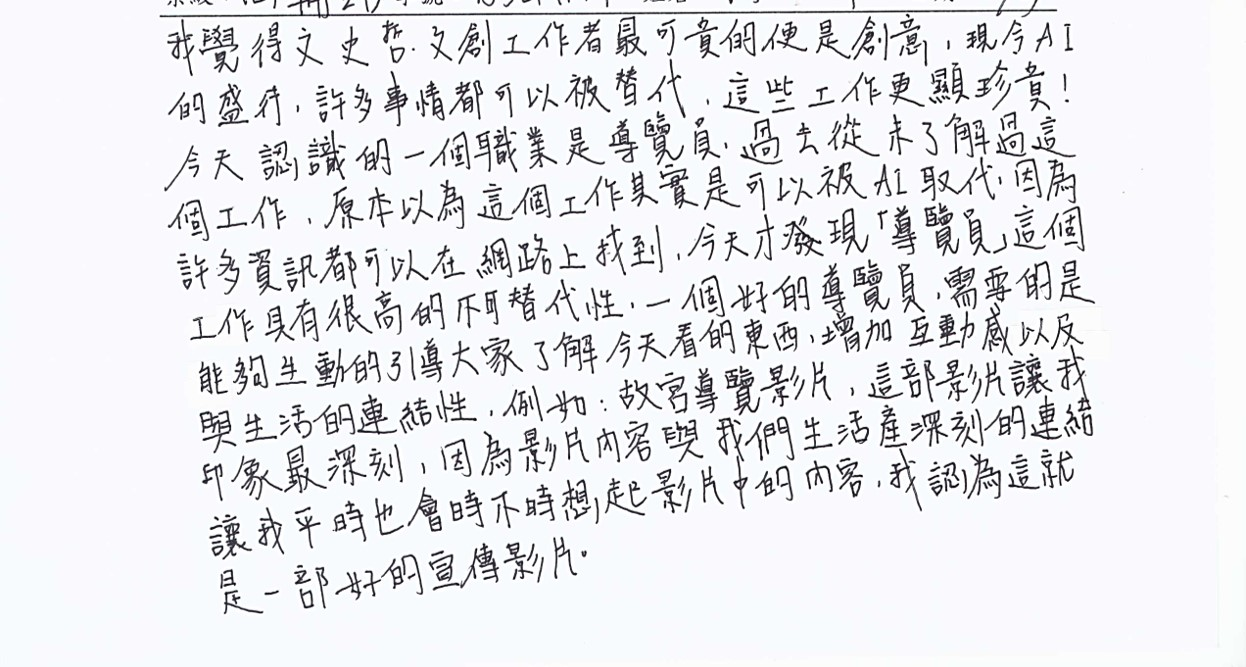 我覺得文史哲.文創工作者最可貴的便是創意，現今AI
的盛行，許多事情都可以被替代，這些工作更顯珍貴！
今天認識的一個職業是導覽員，過去從未了解過這
個工作，原本以為這個工作其實是可以被AI取代，因為
許多資訊都可以在網路上找到，今天才發現「導覽員」這個
工作具有很高的不可替代性，一個好的導覽員，需要的是
能夠生動的引導大家了解今天看的東西，增加互動感以及
與生活的連結性，例如：故宮導覽影片，這部影片讓我
印象最深刻，因為影片內容與我們生活產深刻的連結
讓我平時也會時不時想起影片中的內容，我認為這就
是一部好的宣傳影片。